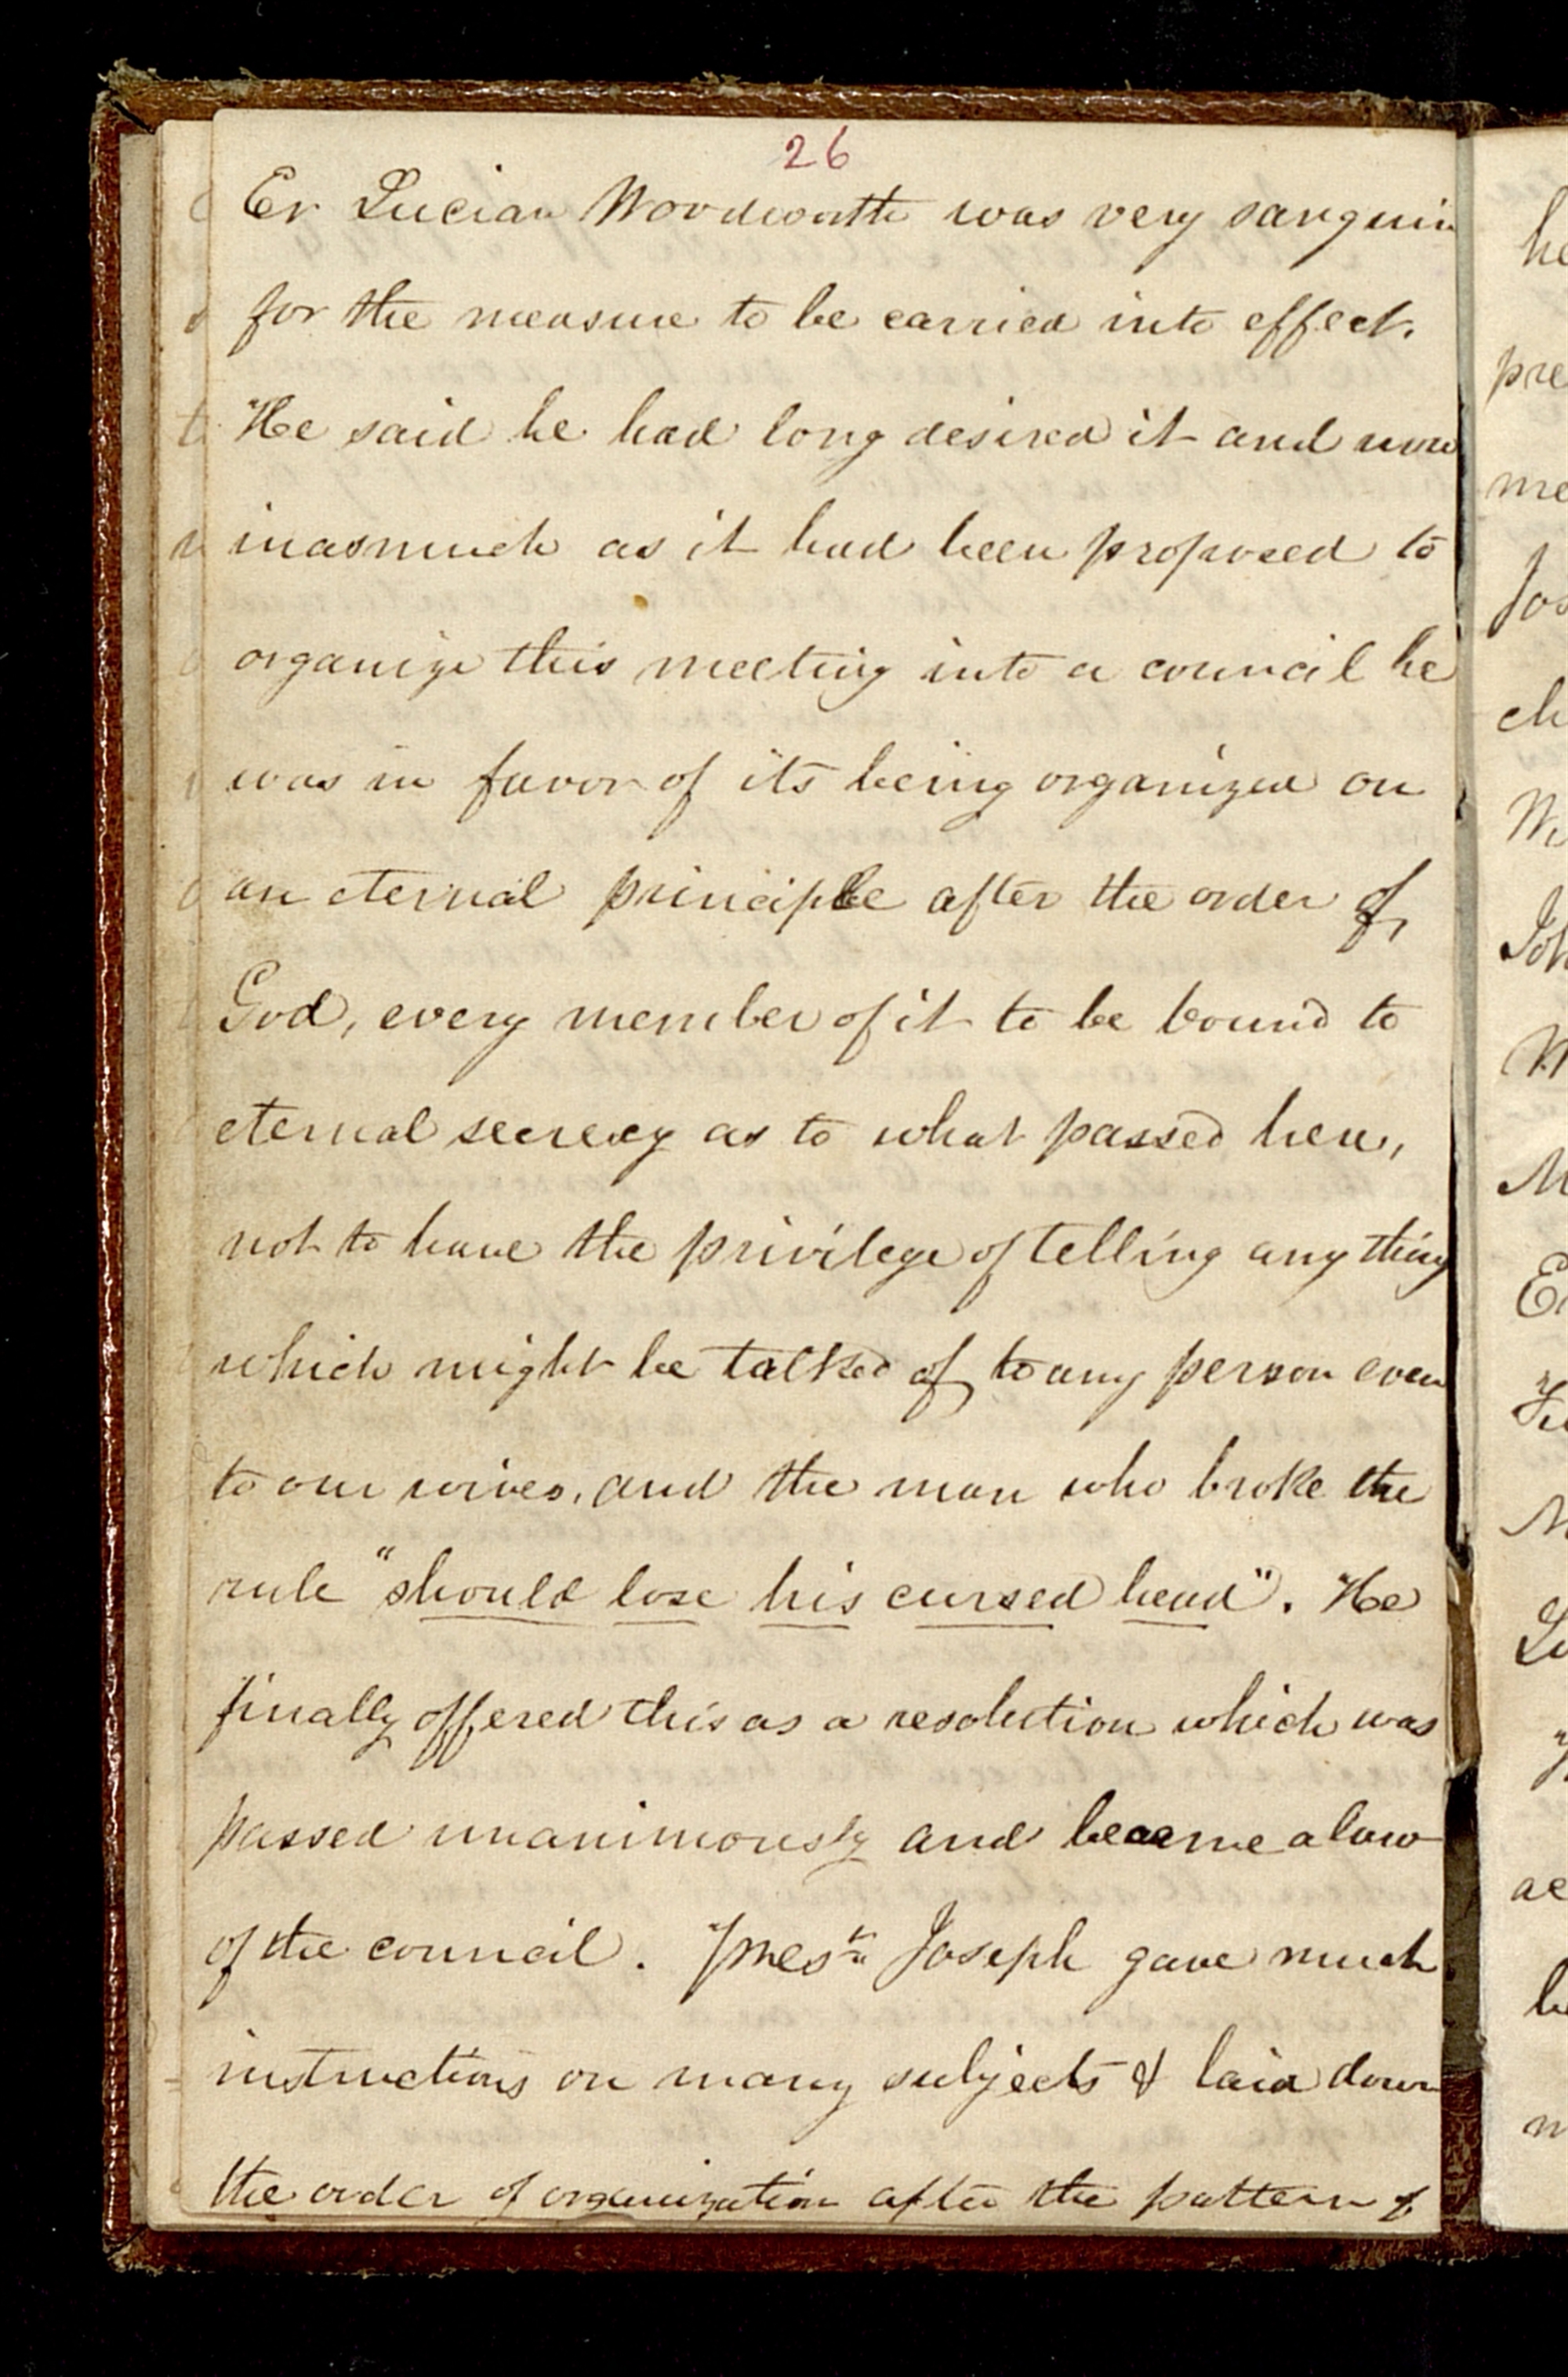 26
Er Lucian Woodworth was very sanguin
for the measure to be carried into effect.
He said he had long desired it and now
inasmuch as it had been proposed to
organize this meeting into a council he
was in favor of its being organized on
an eternal principle after the order of
God, every member of it to be bound to
eternal secrecy as to what passed here,
not to have the privilege of telling any thing
which might be talked of to any person even
to our wives, and the man who broke the
rule "should lose his cursed head". He
finally offered this as a resolution which was
passed unanimously and became a law
of the council. Joseph gave much
instructions on many subjects & laid down
the order of organization after the pattern of
he
pre
me
Jos
ch
Wi
Joh
W
M
Er
M
ac